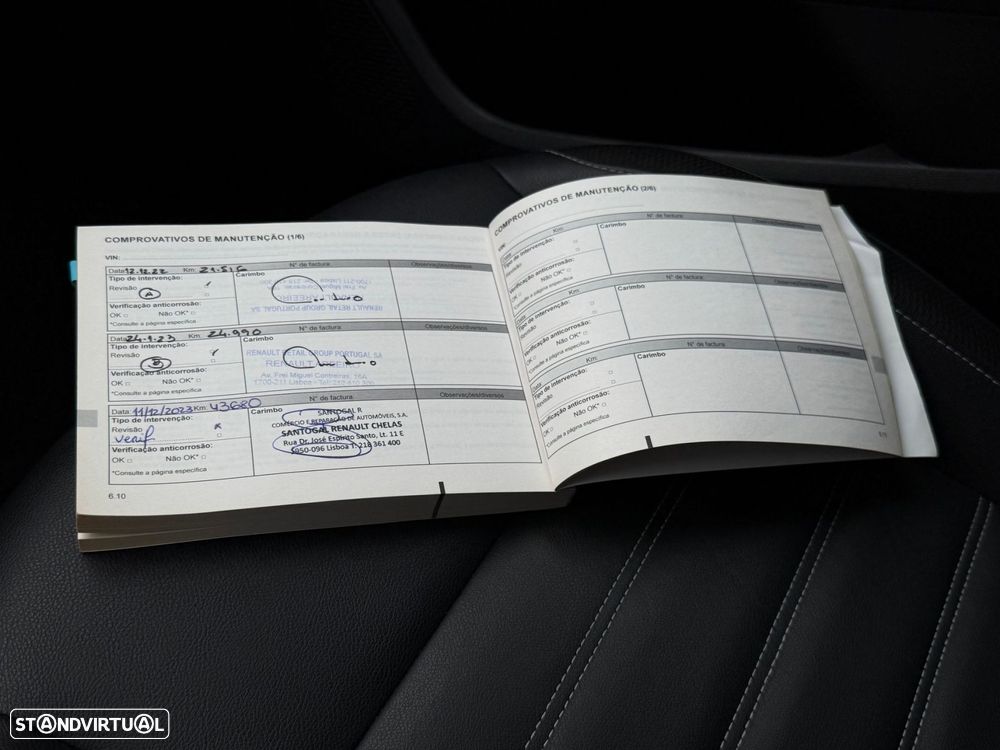 COMPROVATIVOS DE MANUTENÇÃO (1/6)
VIN:
Data: 12.12.22 Km: 21.516 N° de factura Observações/diversos
Tipo de intervenção: Carimbo
Revisão
A
Verificação anticorrosão:
OK □ Não OK* □
*Consulte a página específica
1700-211 Lisboa
RENAULT RETAIL GROUP PORTUGAL SA
Data: 24.1.23 Km: 24.990 N° de factura Observações/diversos
Tipo de intervenção: Carimbo
Revisão
B
Verificação anticorrosão:
OK □ Não OK* □
*Consulte a página específica
RENAULT RETAIL GROUP PORTUGAL SA
RENAULT
Av. Frei Miguel Contreiras, 16A
1700-211 Lisboa - Tel:
Data: 11/12/2023 Km: 43680 N° de factura Observações/diversos
Tipo de intervenção: Carimbo
Revisão x
Verif
Verificação anticorrosão:
OK □ Não OK* □
*Consulte a página específica
SANTOGAL R
COMÉRCIO E REPARAÇÃO DE AUTOMÓVEIS, S.A.
SANTOGAL RENAULT CHELAS
Rua Dr. José Espírito Santo, Lt. 11 E
1950-096 Lisboa T: 218 361 400
6.10
COMPROVATIVOS DE MANUTENÇÃO (2/6)
VIN:
Data Km: N° de factura Observações/diversos
Tipo de intervenção: Carimbo
Revisão
Verificação anticorrosão:
OK □ Não OK* □
*Consulte a página específica
Data Km: N° de factura Observações/diversos
Tipo de intervenção: Carimbo
Revisão
Verificação anticorrosão:
OK □ Não OK* □
*Consulte a página específica
Data Km: N° de factura Observações/diversos
Tipo de intervenção: Carimbo
Revisão
Verificação anticorrosão:
OK □ Não OK* □
*Consulte a página específica
STANDVIRTUAL